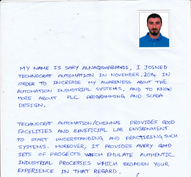 MY NAME IS SARY ALNAQSHABANDI, I JOINED
TECHNOCRAT AUTOMATION IN NOVEMBER, 2014, IN
ORDER TO INCREASE MY AWARENESS ABOUT THE
AUTOMATION INDUSTRIAL SYSTEMS, AND TO KNOW
MORE ABOUT PLC PROGRAMMING AND SCADA
DESIGN.
TECHNOCRAT AUTOMATION/CHENNAI PROVIDES GOOD
FACILITIES AND BENEFICIAL LAB ENVIRONMENT
TO START UNDERSTANDING AND PRACTICING SUCH
SYSTEMS. MOREOVER, IT PROVIDES A VERY GOOD
SETS OF PROJECTS WHICH EMULATE AUTHENTIC
INDUSTRIAL PROCESSES WHICH BROADEN YOUR
EXPERIENCE IN THAT REGARD.